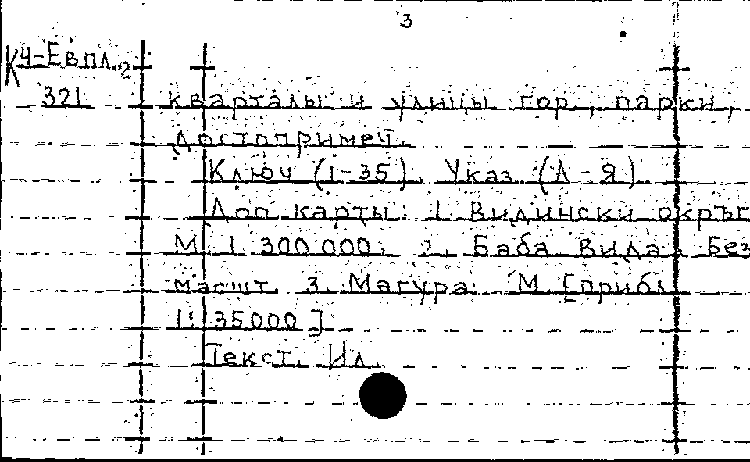 3
К4-Евпл.2
321
кварталы и улицы гор., парки,
достопримеч.
Ключ (1-35). Указ. (А-Я)
Доп. карты: 1. Видински окръг
М 1:300 000; 2. Баба Вида. Без
масшт. 3. Магура. М [прибл.
1:35000]
Текст. Ил.